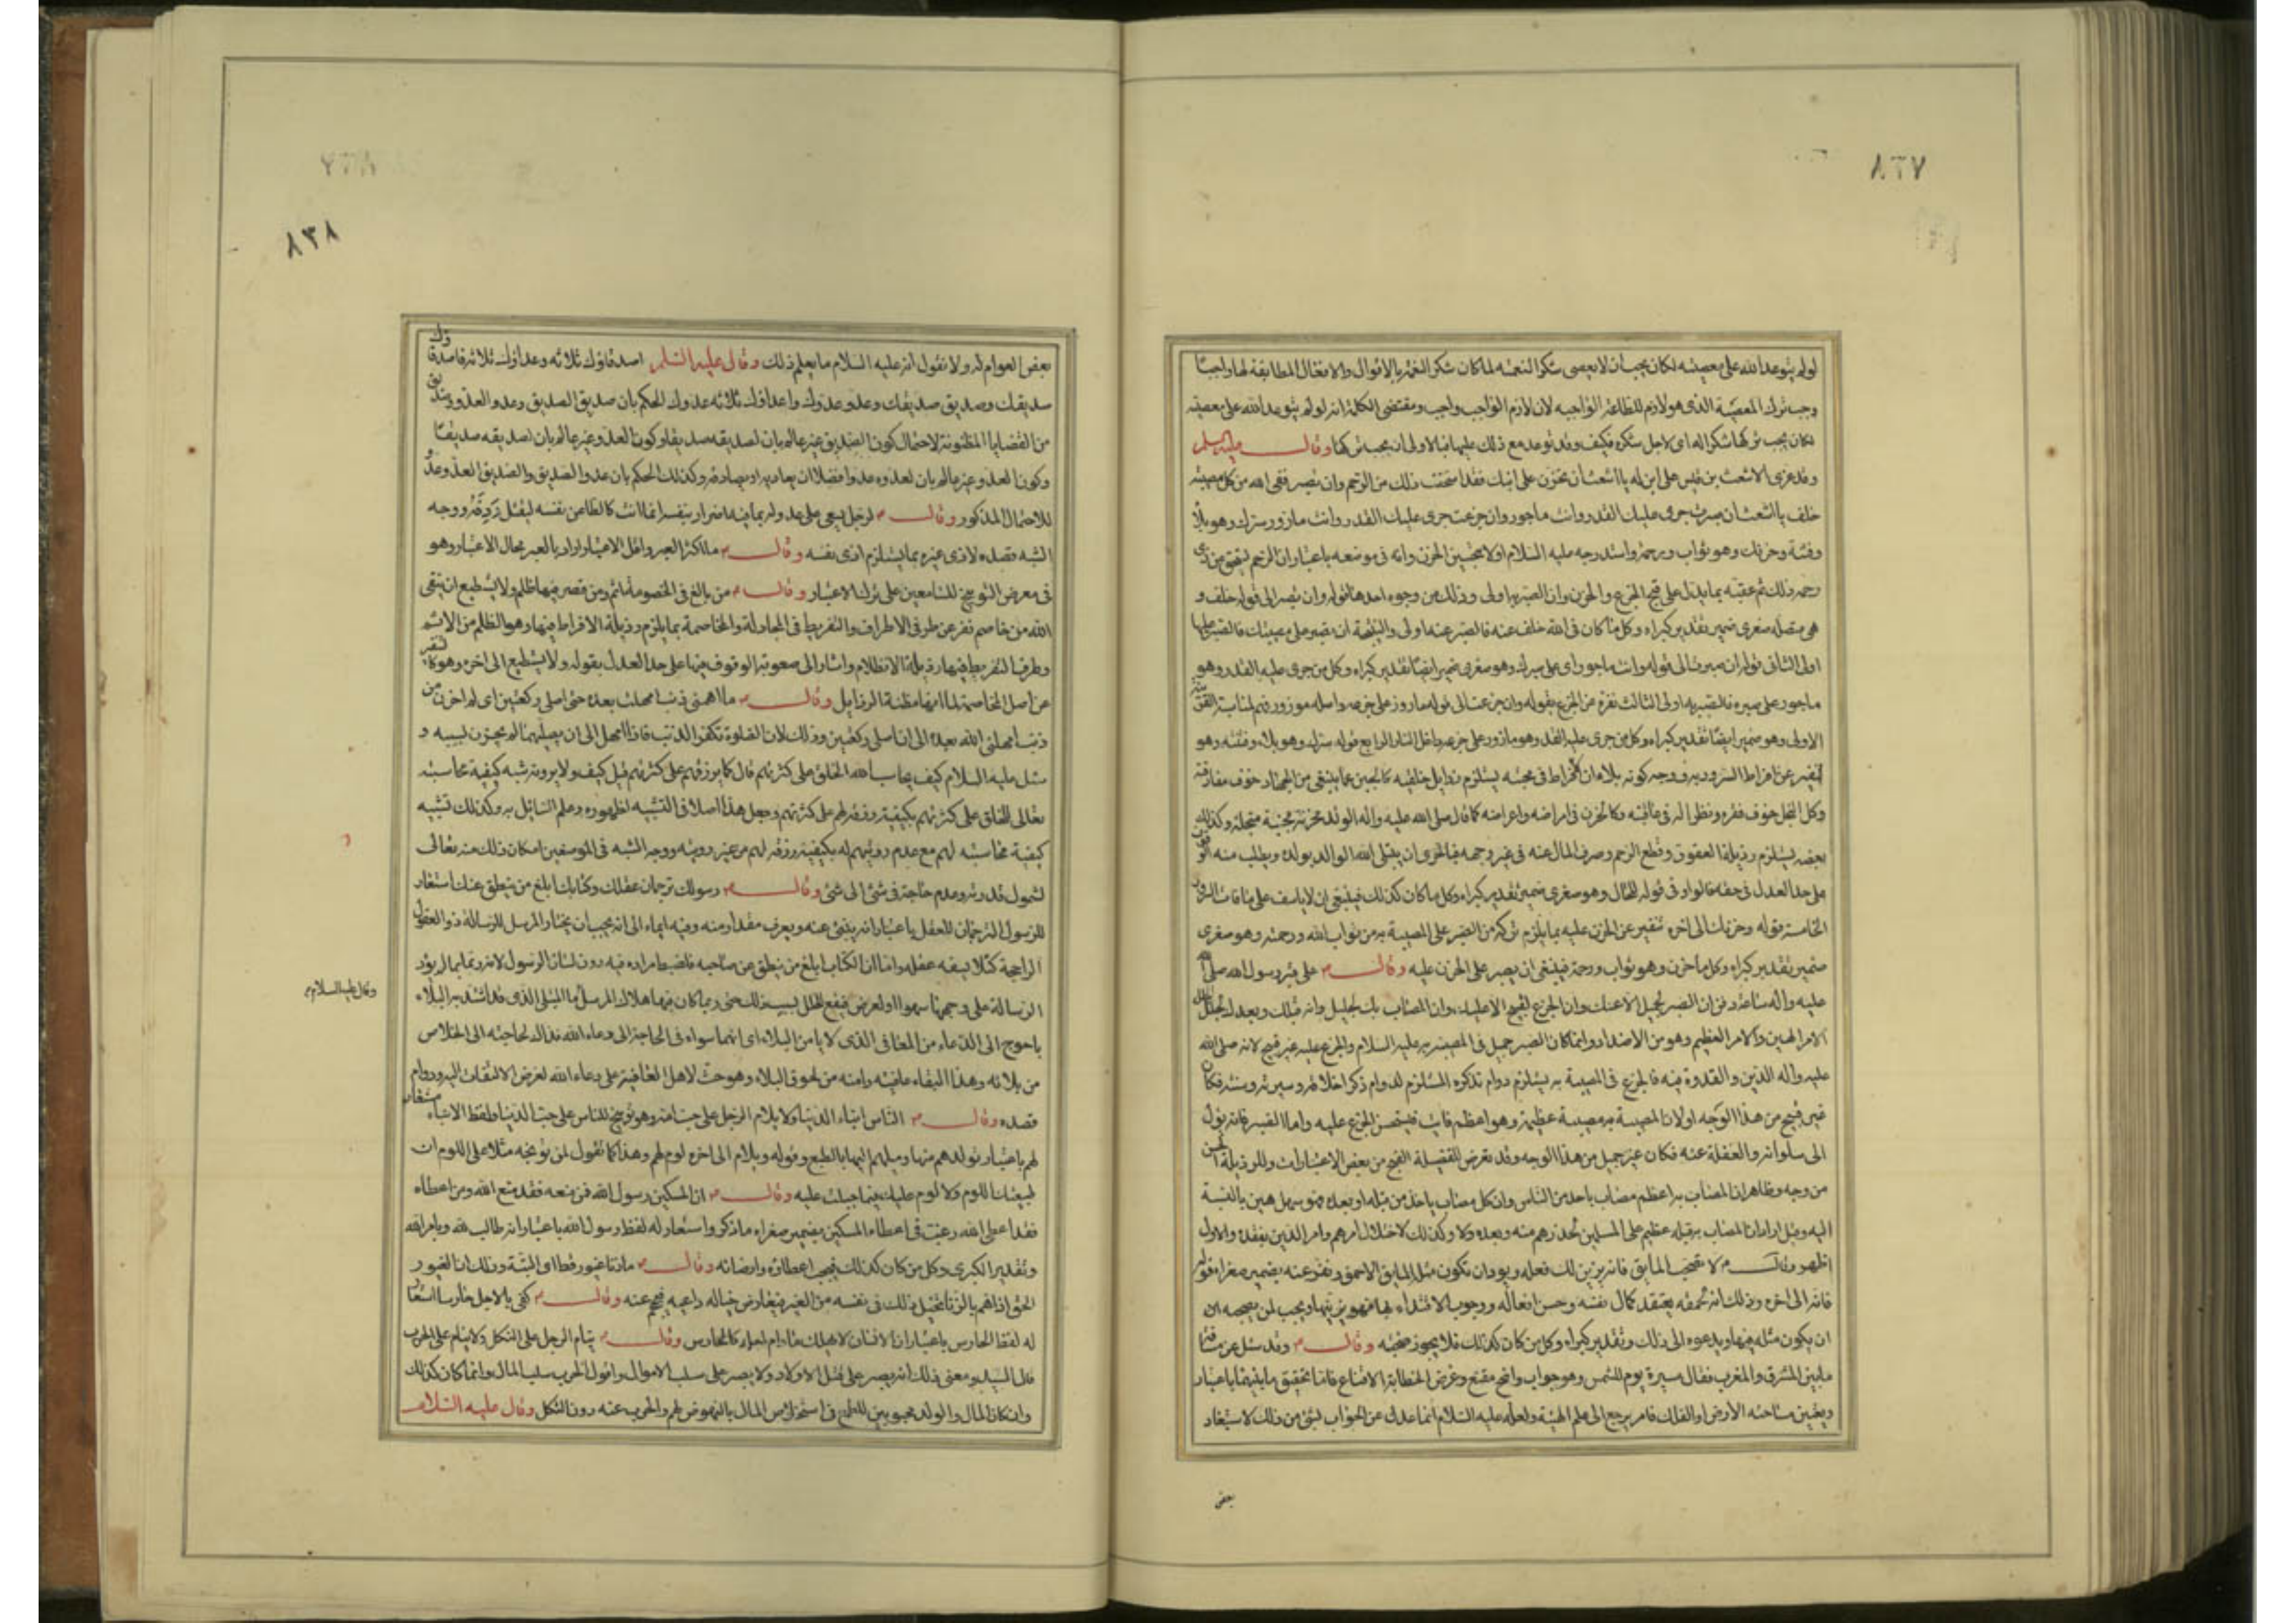 ٨٣٧
لو لم يتوعد الله على معصيته لكان يجب ان لا يعصى شكر النعمه لما كان شكر النعم بالاقوال والافعال المطابقة لها واجبًا
وجب ترك المعصية الذى هو لازم للطاعة الواجبه لان لازم الواجب واجب ومقتضى الكلمة انه لو لم يتوعد الله على معصيته
لكان يجب تركها شكرا له اى لاجل شكره فكيف وقد توعد مع ذلك عليها فبالاولى ان يجب تركها وقال عليه السلم
وقد عزى الاشعث بن قيس على ابن له يا اشعث ان تحزن على ابنك فقد استحقت ذلك من الرحم وان تصبر ففى الله من كل مصيبته
خلف يا اشعث ان صبرت جرى عليك القدر وانت ماجور وان جزعت جرى عليك القدر وانت مازور سرك وهو بلاء
وفتنة وحزنك وهو ثواب ورحمة واستدرجه عليه السلام اولا بتحسين الحزن وانه فى موضعه باعتبار ان الرحم
رحمه وذلك ثم عقبه بما يدل على قبح الجزع والحزن وان الصبر به اولى وذلك من وجوه احدها قوله وان تصبر الى قوله خلف و
هى متصله صغرى ضمير تقدير كبراه وكل ما كان فى الله خلف عنه فالصبر عنه اولى والنتيجة ان تصبر على مصيبتك فالصبر عليها
اولى الثانى قوله ان صبرت الى قوله وانت ماجور اى على صبرك وهو صغرى ضمير ايضا تقدير كبراه وكل من جرى عليه القدر وهو
ماجور على صبره فالصبر به اولى الثالث نفره عن الجزع بقوله وان جزعت الى قوله مازور على جزعه واصله موزور
الاولى وهو ضمير ايضا تقدير كبراه وكل من جرى عليه القدر وهو مازور على جزعه داخل النار الرابع قوله سرك وهو بلاء وفتنه وهو
تنفير عن افراط السرور به ووجه كونه بلاء ان الافراط فى محبته يستلزم رذايل خلقيه كالجبن عما ينبغى من الجهاد خوف مفارقته
وكل البخل خوف فقره ونظرا له فى عاقبته وكالحزن فى امراضه واعراضه كما قال صلى الله عليه واله الولد محزنة مجبنة مبخلة وكذلك
بغضه يستلزم رذيلة العقوق وقطع الرحم وصرف المال عنه فى غير وجهه فبالحرى ان يبتلى الله الوالد بولده ويطلب منه الوقوف
على حد العدل فى حقه فالواو فى قوله للحال وهو صغرى ضمير تقدير كبراه وكل ما كان كذلك فينبغى ان لا ياسف على ما فات
الخامسة قوله وحزنك الى اخره تنفير عن الحزن عليه بما يلزم تركه من الصبر على المصيبة به من ثواب الله ورحمته وهو صغرى
ضمير تقدير كبراه وكل ما حزن وهو ثواب ورحمة فينبغى ان يصبر على الحزن عليه وقال م على قبر رسول الله صلى الله
عليه واله ساعة دفن ان الصبر لجميل الا عنك وان الجزع لقبيح الا عليك وان المصاب بك لجليل وانه قبلك وبعدك لجلل
الامر الهين والامر العظيم وهو من الاضداد وانما كان الصبر جميل فى المصيبة به عليه السلام والجزع عليه غير قبيح لانه صلى الله
عليه واله الدين والقدوة فيه فالجزع فى المصيبة به يستلزم دوام تذكره المستلزم لدوام ذكر اخلاقه وسيرته وسنته فكان
غير قبيح من هذا الوجه اولان المصيبة به مصيبة عظيمة وهو اعظم فايت فيستحسن الجزع عليه واما الصبر فانه يؤل
الى سلوانه والغفلة عنه فكان غير جميل من هذا الوجه وقد تعرض للفضيلة القبح من بعض الاعتبارات وللرذيلة الحسن
من وجه وظاهر ان المصاب به اعظم مصاب باحد من الناس وان كل مصاب باحد من قبله او بعده فهو سهل هين بالنسبة
اليه وقيل اراد ان المصاب به قبله عظيم على المسلمين لحذرهم منه وبعده ولا وكذلك لاختلال امرهم وامر الدين بفقده والاول
اظهر وقال م لا تصحب المايق فانه يزين لك فعله ويود ان تكون مثله المايق الاحمق ونفر عنه بضمير صغراه قوله
فانه الى اخره وذلك انه لحمقه يعتقد كمال نفسه وحسن افعاله ووجوب الاقتداء بها فهو يزينها ويحب لمن يصحبه ان
ان يكون مثله فيها ويدعوه الى ذلك وتقدير كبراه وكل من كان كذلك فلا يجوز صحبته وقال م وقد سئل عن مسافة
ما بين المشرق والمغرب فقال مسيرة يوم للشمس وهو جواب واضح مقنع وغرض الخطابة الاقناع فاما تحقيق ما بينهما باعتبار
وتعيين مساحته الارض او الفلك فامر يرجع الى علم الهيئة ولعله عليه السلام انما عدل عن الجواب لشئ من ذلك لاستبعاد
بعض
٨٣٨
بعض العوام له ولا نقول انه عليه السلام ما يعلم ذلك وقال عليه السلم اصدقاؤك ثلاثه وعداؤك ثلاثه فاصدقاؤك
صديقك وصديق صديقك وعدو عدوك واعداؤك ثلاثه عدوك الحكم بان صديق الصديق وعدو العدو صديق
من القضايا المظنونة لاحتمال كون الصديق غير عالم بان لصديقه صديقا وكون العدو غير عالم بان لصديقه صديقا
وكون العدو غير عالم بان لعدوه عدوا فضلا ان يعاديه او يصادقه وكذلك الحكم بان عدو الصديق والصديق العدو عدو
للاحتمال المذكور وقال م لرجل يسعى على عدو له بما فيه اضرار بنفسه انما انت كالطاعن نفسه ليقتل ردفه ووجه
الشبه قصده لاذى غيره بما يستلزم اذى نفسه وقال م ما اكثر العبر واقل الاعتبار اراد بالعبر محال الاعتبار وهو
فى معرض التوبيخ للسامعين على ترك الاعتبار وقال م من بالغ فى الخصومة اثم ومن قصر فيها ظلم ولا يستطيع ان يتقى
الله من خاصم نفر عن طرفى الاطراف والتفريط فى المجادلة والمخاصمة بما يلزم رذيلة الافراط فيها وهو الظلم من الاثم
وطرف التفريط فيها رذيلة الانظلام واشار الى صعوبة الوقوف فيها على حد العدل بقوله ولا يستطيع الى اخره وهو كالتنفير
عن اصل المخاصمة لما انها مظنة الرذايل وقال م ما اهمنى ذنب امهلت بعده حتى اصلى ركعتين اى لم احزن من
ذنب امهلنى الله بعده الى ان اصلى ركعتين وذلك لان الصلوة تكفر الذنب فاذا امهل الى ان يصليهما لم يحزن لسببه و
سئل عليه السلام كيف يحاسب الله الخلق على كثرتهم قال كما يرزقهم على كثرتهم قيل كيف ولا يرونه شبه كيفية محاسبته
تعالى للخلق على كثرتهم بكيفية رزقه لهم على كثرتهم وجعل هذا اصلا فى التشبيه لظهوره وعلم السائل به وكذلك تشبيه
كيفية محاسبته لهم مع عدم رويتهم له بكيفية رزقه لهم من غير رويته ووجه الشبه فى الموضعين امكان ذلك منه تعالى
لشمول قدرته وعدم حاجته فى شئ الى شئ وقال م رسولك ترجمان عقلك وكتابك ابلغ من ينطق عنك استعار
للرسول الترجمان للعقل باعتبار انه ينبئ عنه ويعرف مقداره منه وفيه ايماء الى انه يجب ان يختار المرسل للرسالة ذو العقول
الراجحة كيلا يسفه عقله واما ان الكتاب ابلغ من ينطق عن صاحبه فلضبط مراده فيه دون لسان الرسول لانه ربما لم يؤد
الرسالة على وجهها سهوا او لغرض فيقع الخلل بسبب ذلك حتى ربما كان فيها هلاك المرسل ما المبتلى الذى قد اشتد به البلاء
وقال عليه السلام
باحوج الى الدعاء من المعافى الذى لا يامن البلاء اى انهما سواء فى الحاجة الى دعاء الله فذاك لحاجته الى الخلاص
من بلائه وهذا لبقاء عافيته وامنه من لحوق البلاء وهو حث لاهل العافية على دعاء الله لغرض الالتفات اليه ودوام
قصده وقال م الناس ابناء الدنيا ولا يلام الرجل على حب امه وهو توبيخ للناس على حب الدنيا ولفظ الابناء مستعار
لهم باعتبار تولدهم منها وميلهم اليها بالطبع وقوله ويلام الى اخره لوم لهم وهذا كما تقول لمن توبخه مثلا على اللوم ان
طبيعتك اللوم ولا لوم عليك فيما جبلت عليه وقال م ان المسكين رسول الله فمن منعه فقد منع الله ومن اعطاه
فقد اعطى الله رغبت فى اعطاء المسكين بضمير صغراه ما ذكر واستعار له لفظ رسول الله باعتبار انه طالب لله وبامر الله
وتقدير الكبرى وكل من كان كذلك فيجب اعطاؤه وارضائه وقال م ما زنا غيور قط اى البتة وذلك ان الغيور
الحق اذا هم بالزنا تخيل ذلك فى نفسه من الغير فيعارض خياله داعيه فيحجم عنه وقال م كفى بالاجل حارسا استعار
له لفظ الحارس باعتبار ان الانسان لا يهلك مادام اجله كالحارس وقال م ينام الرجل على الثكل ولا ينام على الحرب
قال السيد ومعنى ذلك انه يصبر على قتل الاولاد ولا يصبر على سلب الاموال واقول الحرب سلب المال وانما كان كذلك
وان كان المال والولد محبوبين للطمع فى استخلاص المال بالنهوض لهم والحرب عنه دون الثكل وقال عليه السلام